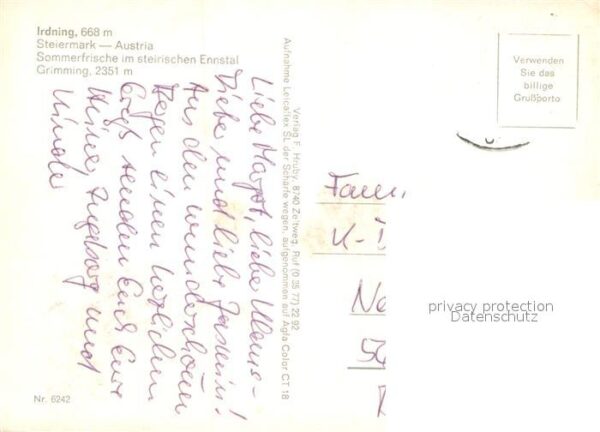 Irdning, 668 m
Steiermark — Austria
Sommerfrische im steirischen Ennstal
Grimming, 2351 m
Verwenden
Sie das
billige
Grußporto
Verlag F. Hruby, 8740 Zeltweg, Ruf (0 35 77) 22 92
Aufnahme Leicaflex SL der Schärfe wegen, aufgenommen auf Agfa Color CT 18
Liebe Margot, liebe Klaus-
Dieter und liebe Jasmin!
Aus dem wunderschönen
einen herzlichen
Gruß senden Euch Eure
Heinz, Ingeborg und
Nicole
Fam.
K-
Ne
privacy protection
Datenschutz
Nr. 6242